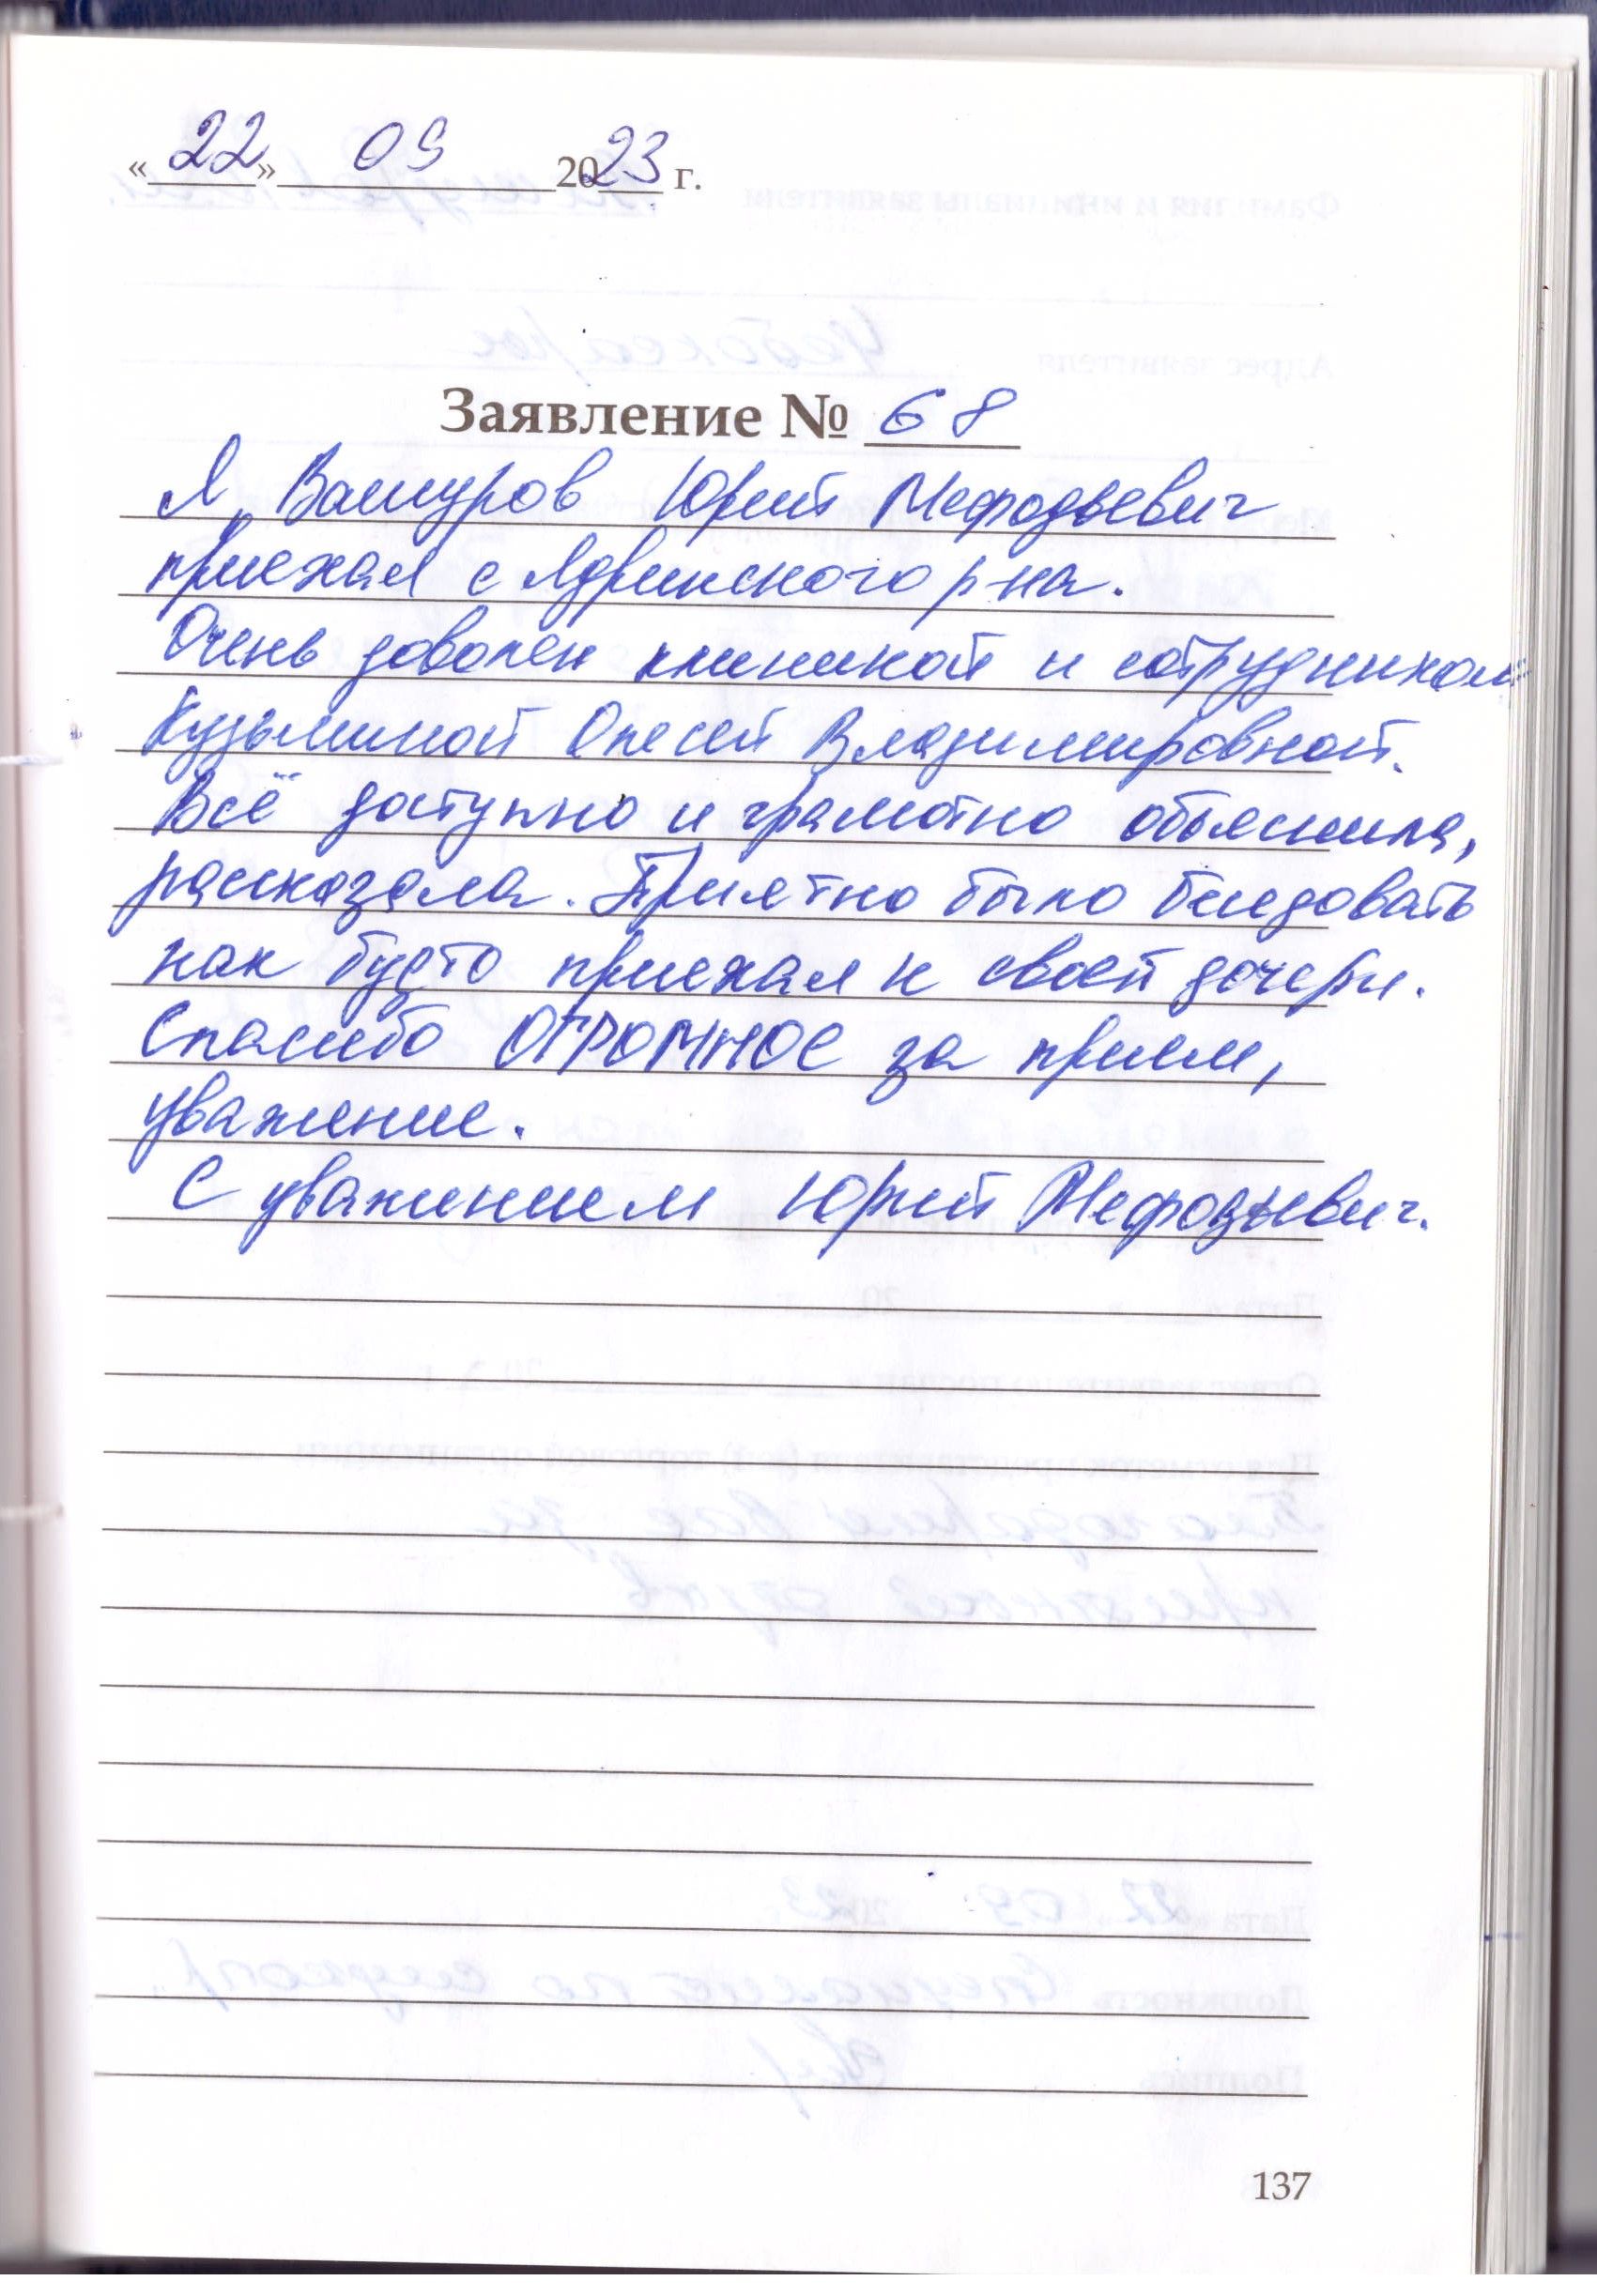 «22» 09 2023 г.
Заявление № 68
Я, Вашуров Юрий Мефодьевич
приехал с Ядринского р-на.
Очень доволен клиникой и сотрудником
Кузьминой Олесей Владимировной.
Всё доступно и грамотно объяснила,
рассказала. Приятно было беседовать
как будто приехал к своей дочери.
Спасибо ОГРОМНОЕ за прием,
уважение.
С уважением Юрий Мефодьевич.
137